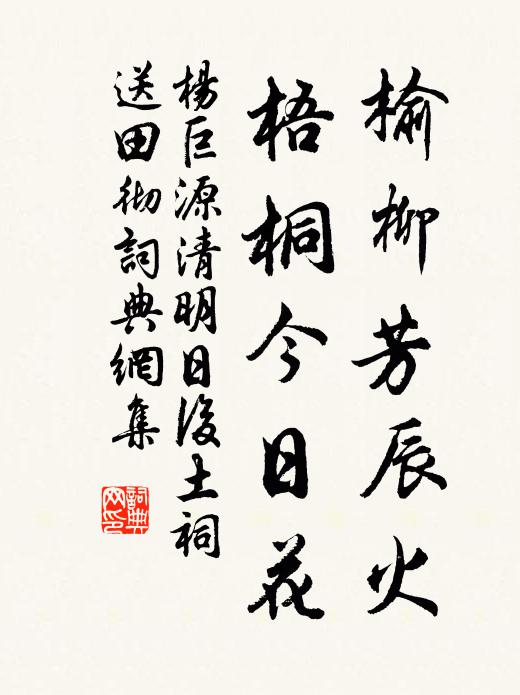 榆柳芳辰火
梧桐今日花
楊巨源清明日後土祠
送田彻詞典網集
詞典网印